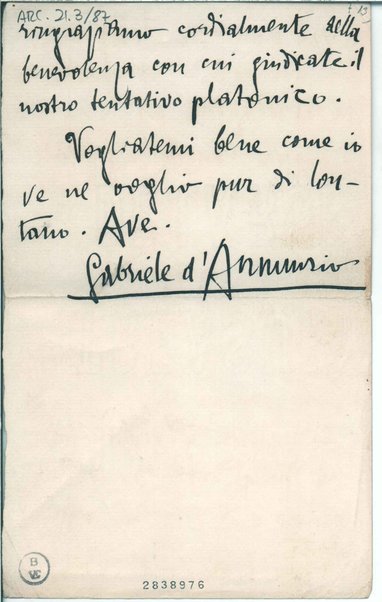 ARC. 21.3/87
f 19
ringraziamo cordialmente della
benevolenza con cui giudicate il
nostro tentativo platonico.
Vogliatemi bene come io
ve ne voglio pur di lon-
tano. Ave.
Gabriele d'Annunzio
B
VE
2838976